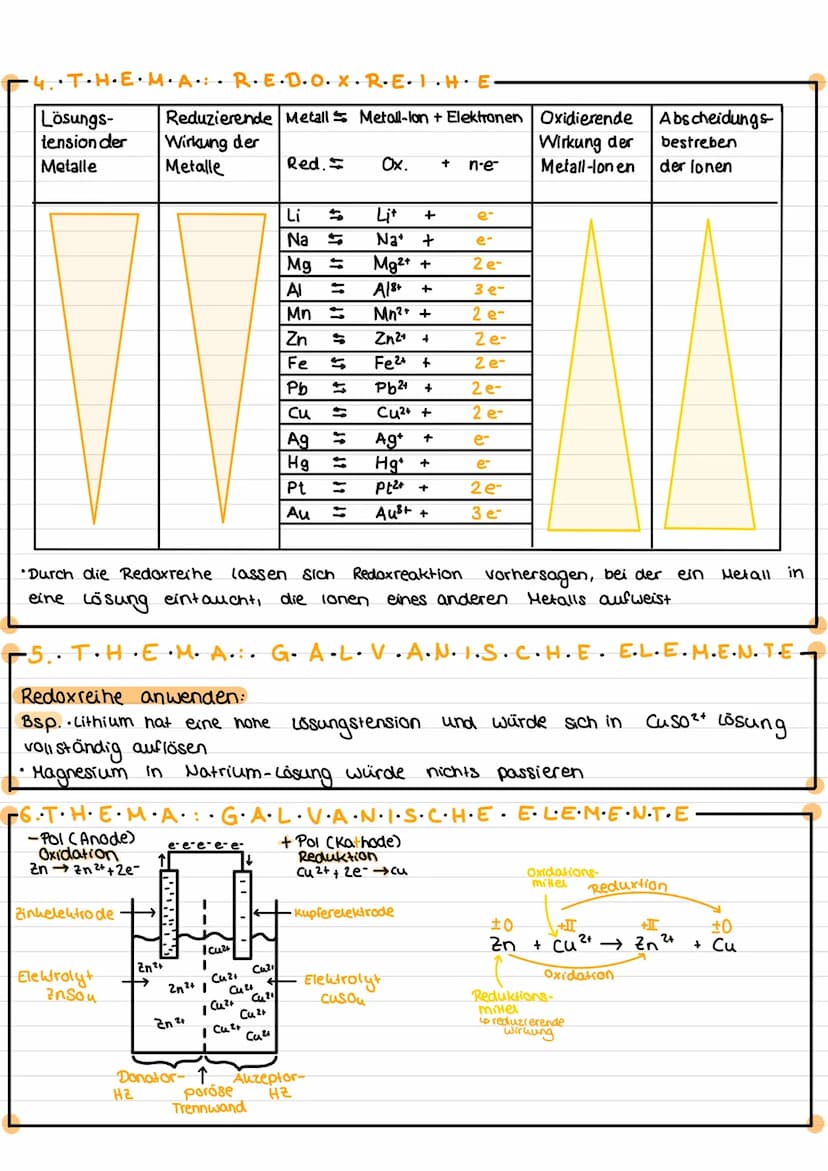 4. . T.H.E.M.A.: . R.E.D.O.X.R.E.I.H.E
Lösungs-
tension der
Metalle
Reduzierende
Wirkung der
Metalle
Metall ⇆ Metall-Ion + Elektronen
Red. ⇆ Ox. + n·e⁻
Oxidierende
Wirkung der
Metall-Ionen
Abscheidungs-
bestreben
der Ionen
Li ⇆ Li⁺ + e⁻
Na ⇆ Na⁺ + e⁻
Mg ⇆ Mg²⁺ + 2e⁻
Al ⇆ Al³⁺ + 3e⁻
Mn ⇆ Mn²⁺ + 2e⁻
Zn ⇆ Zn²⁺ + 2e⁻
Fe ⇆ Fe²⁺ + 2e⁻
Pb ⇆ Pb²⁺ + 2e⁻
Cu ⇆ Cu²⁺ + 2e⁻
Ag ⇆ Ag⁺ + e⁻
Hg ⇆ Hg⁺ + e⁻
Pt ⇆ Pt²⁺ + 2e⁻
Au ⇆ Au³⁺ + 3e⁻
·Durch die Redoxreihe lassen sich Redoxreaktion vorhersagen, bei der ein Metall in
eine Lösung eintaucht, die Ionen eines anderen Metalls aufweist
5. . T.H.E.M.A.: . G.A.L.V.A.N.I.S.C.H.E. E.L.E.M.E.N.T.E
Redoxreihe anwenden:
Bsp. ·Lithium hat eine hohe Lösungstension und würde sich in CuSO²⁺ Lösung
vollständig auflösen
· Magnesium in Natrium-Lösung würde nichts passieren
6.T.H.E.M.A.: . G.A.L.V.A.N.I.S.C.H.E. E.L.E.M.E.N.T.E
-Pol (Anode)
Oxidation
Zn → Zn²⁺+2e⁻
e⁻e⁻e⁻e⁻e⁻
+ Pol (Kathode)
Reduktion
Cu²⁺+2e⁻ → Cu
Zinkelektrode
Kupferelektrode
Elektrolyt
ZnSO₄
Elektrolyt
CuSO₄
Zn²⁺
Zn²⁺
Zn²⁺
Cu²⁺
Cu²⁺
Cu²⁺
Cu²⁺
Cu²⁺
Cu²⁺
Cu²⁺
Cu²⁺
Cu²⁺
Donator-
HZ
poröse
Trennwand
Akzeptor-
HZ
Oxidations-
mittel
Reduxtion
±0 +II +II ±0
Zn + Cu²⁺ → Zn²⁺ + Cu
Oxidation
Reduktions-
mittel
↳reduzierende
Wirkung